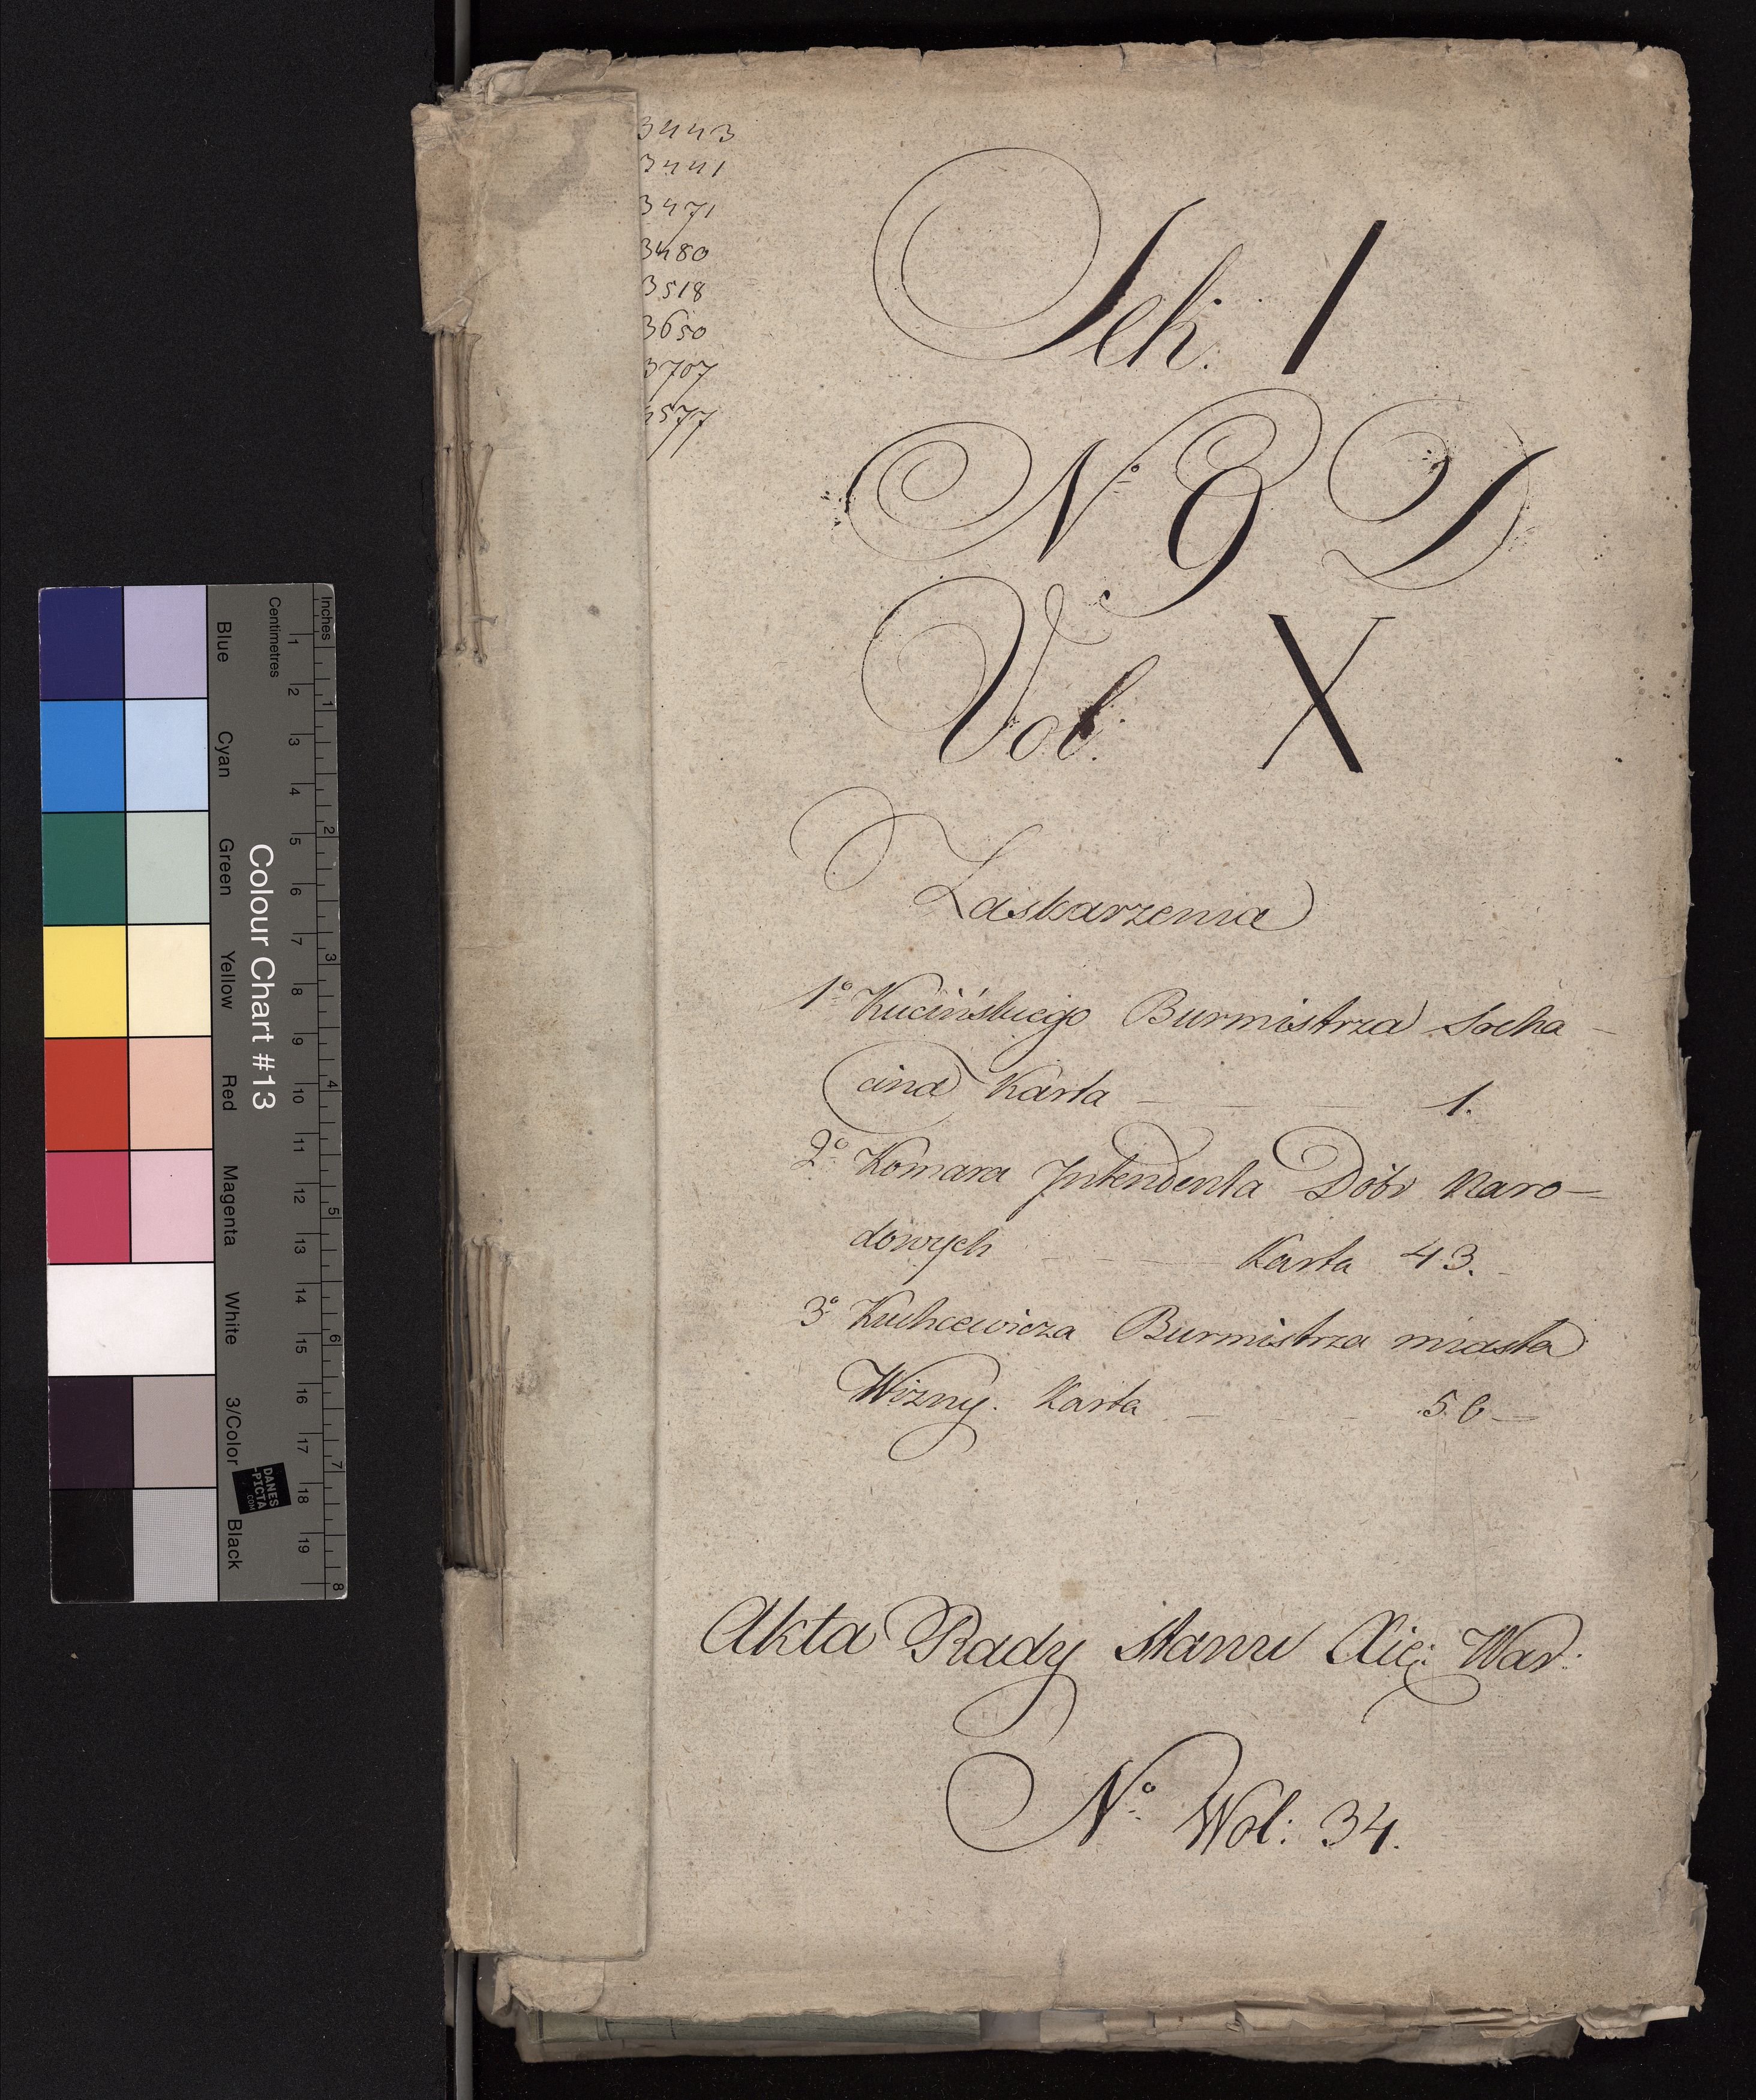 3443
3441
3471
3480
3518
3650
3707
4577
Sek: 1
Nº 9 D
Vol: X
Zaskarzenia
1º Kucińskiego Burmistrza Socha-
cina Karta — — — 1.
2º Komara Intendenta Dóbr Naro=
dowych — — — Karta 43.
3º Kuchcewicza Burmistrza miasta
Wizny. Karta — — — 56 —
Akta Rady Stanu Xię: War:
Nº Wol: 34.
Inches
Centimetres
1 2 3 4 5 6 7 8
1 2 3 4 5 6 7 8 9 10 11 12 13 14 15 16 17 18 19
Colour Chart #13
Blue Cyan Green Yellow Red Magenta White 3/Color Black
DANES
-PICTA
.COM